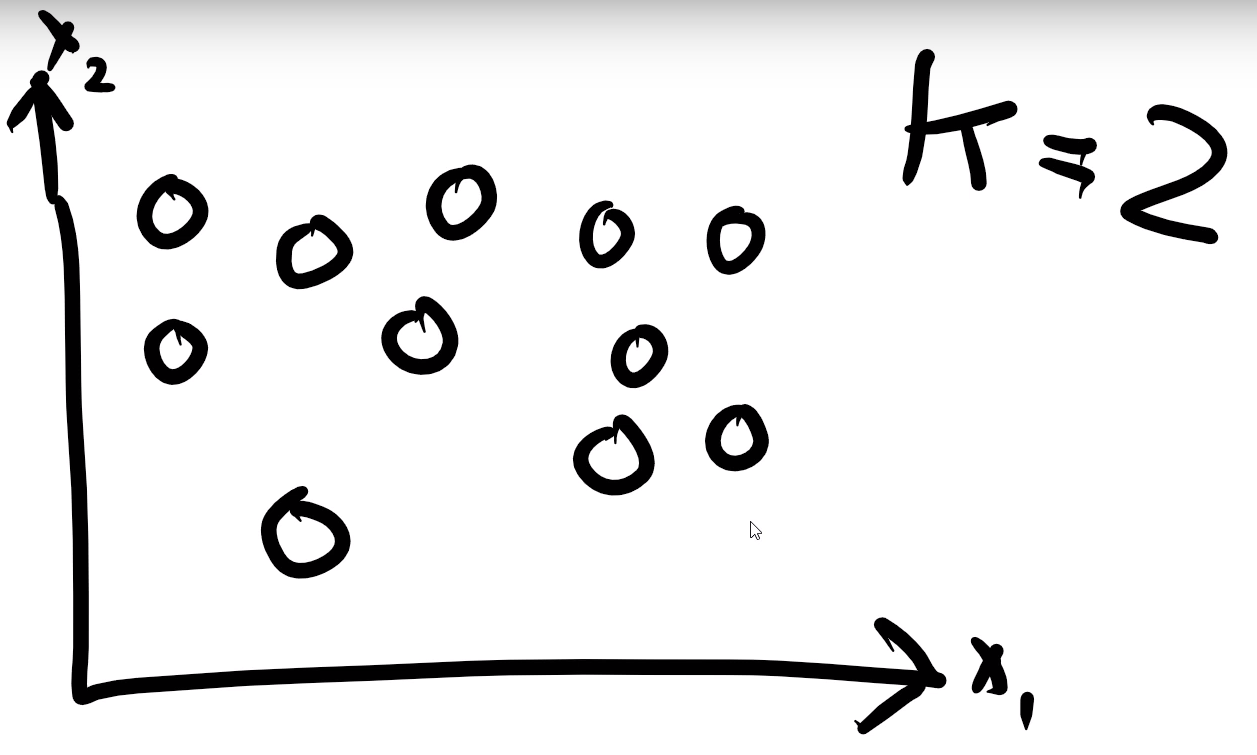 x2
k=2
x1